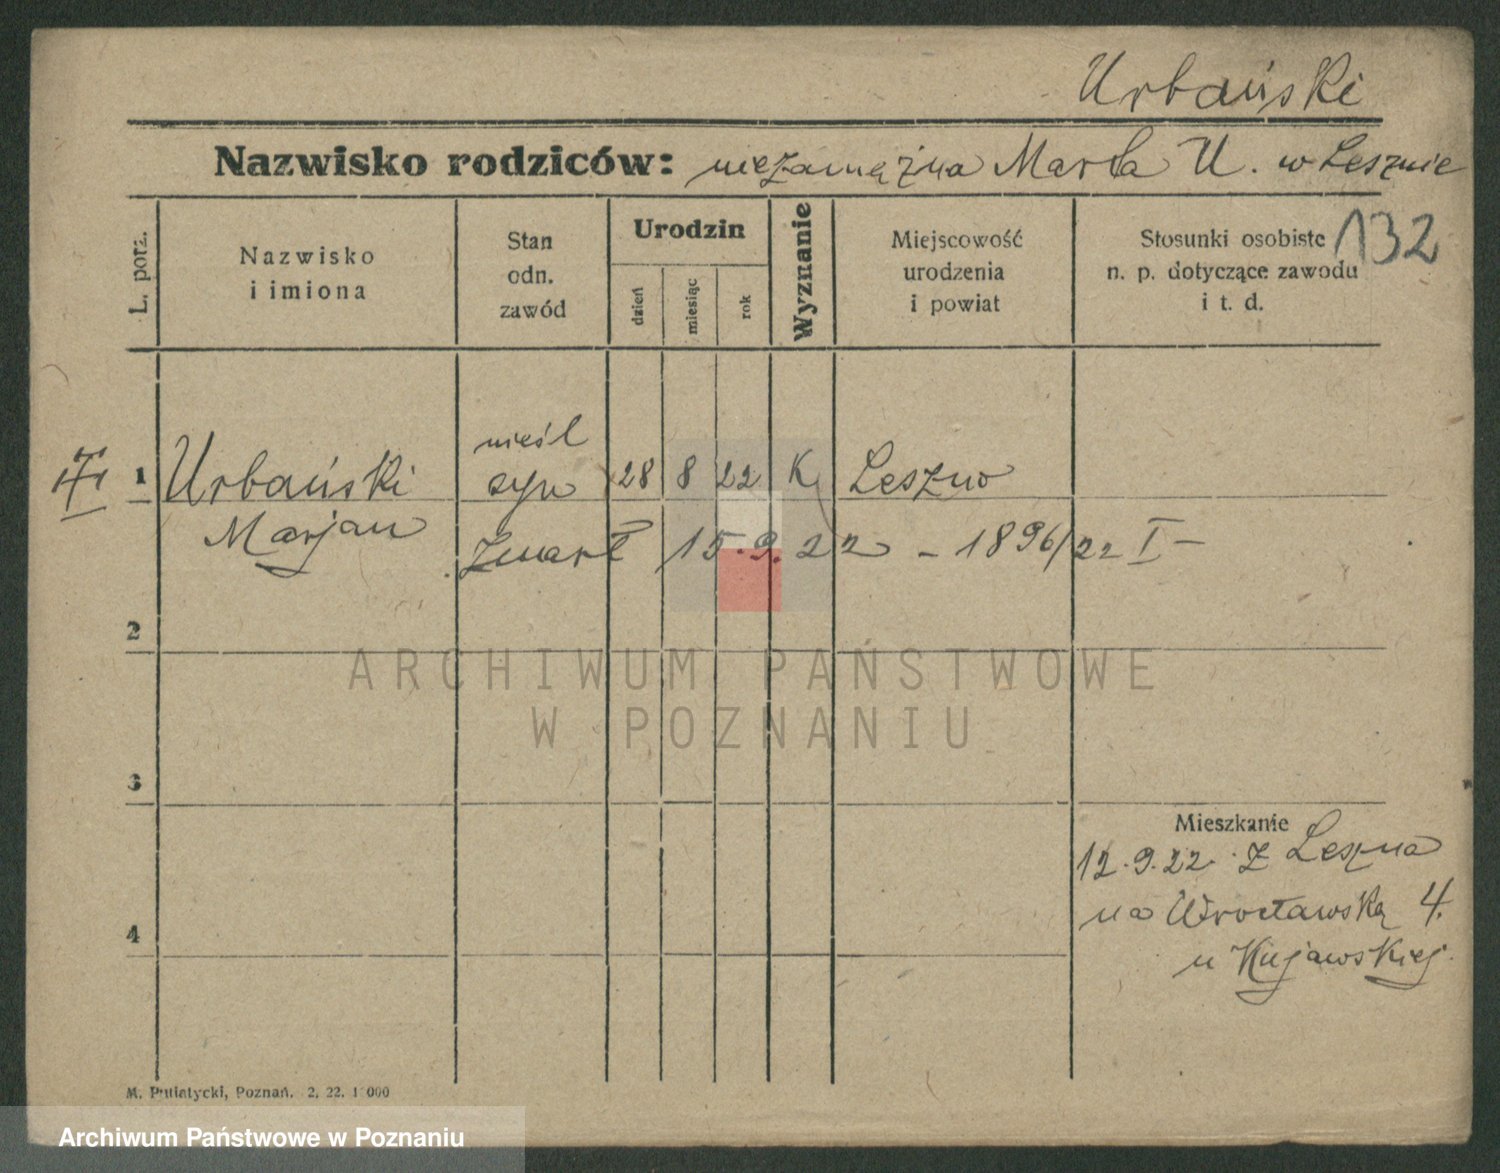 Urbański
Nazwisko rodziców: niezamężna Marta U. w Lesznie
L. porz.
Nazwisko
i imiona
Stan
odn.
zawód
Urodzin
dzień
miesiąc
rok
Wyznanie
Miejscowość
urodzenia
i powiat
Stosunki osobiste
n. p. dotyczące zawodu
i t. d.
132
1 Urbański nieśl syn 28 8 22 K Leszno
Marjan zmarł 15.9.22 - 1896/22 I -
2
3
4
ARCHIWUM PAŃSTWOWE
W POZNANIU
Mieszkanie
12.9.22. z Leszna
na Wrocławską 4.
u Kujawskiej.
M. Putiatycki, Poznań. 2. 22.
Archiwum Państwowe w Poznaniu